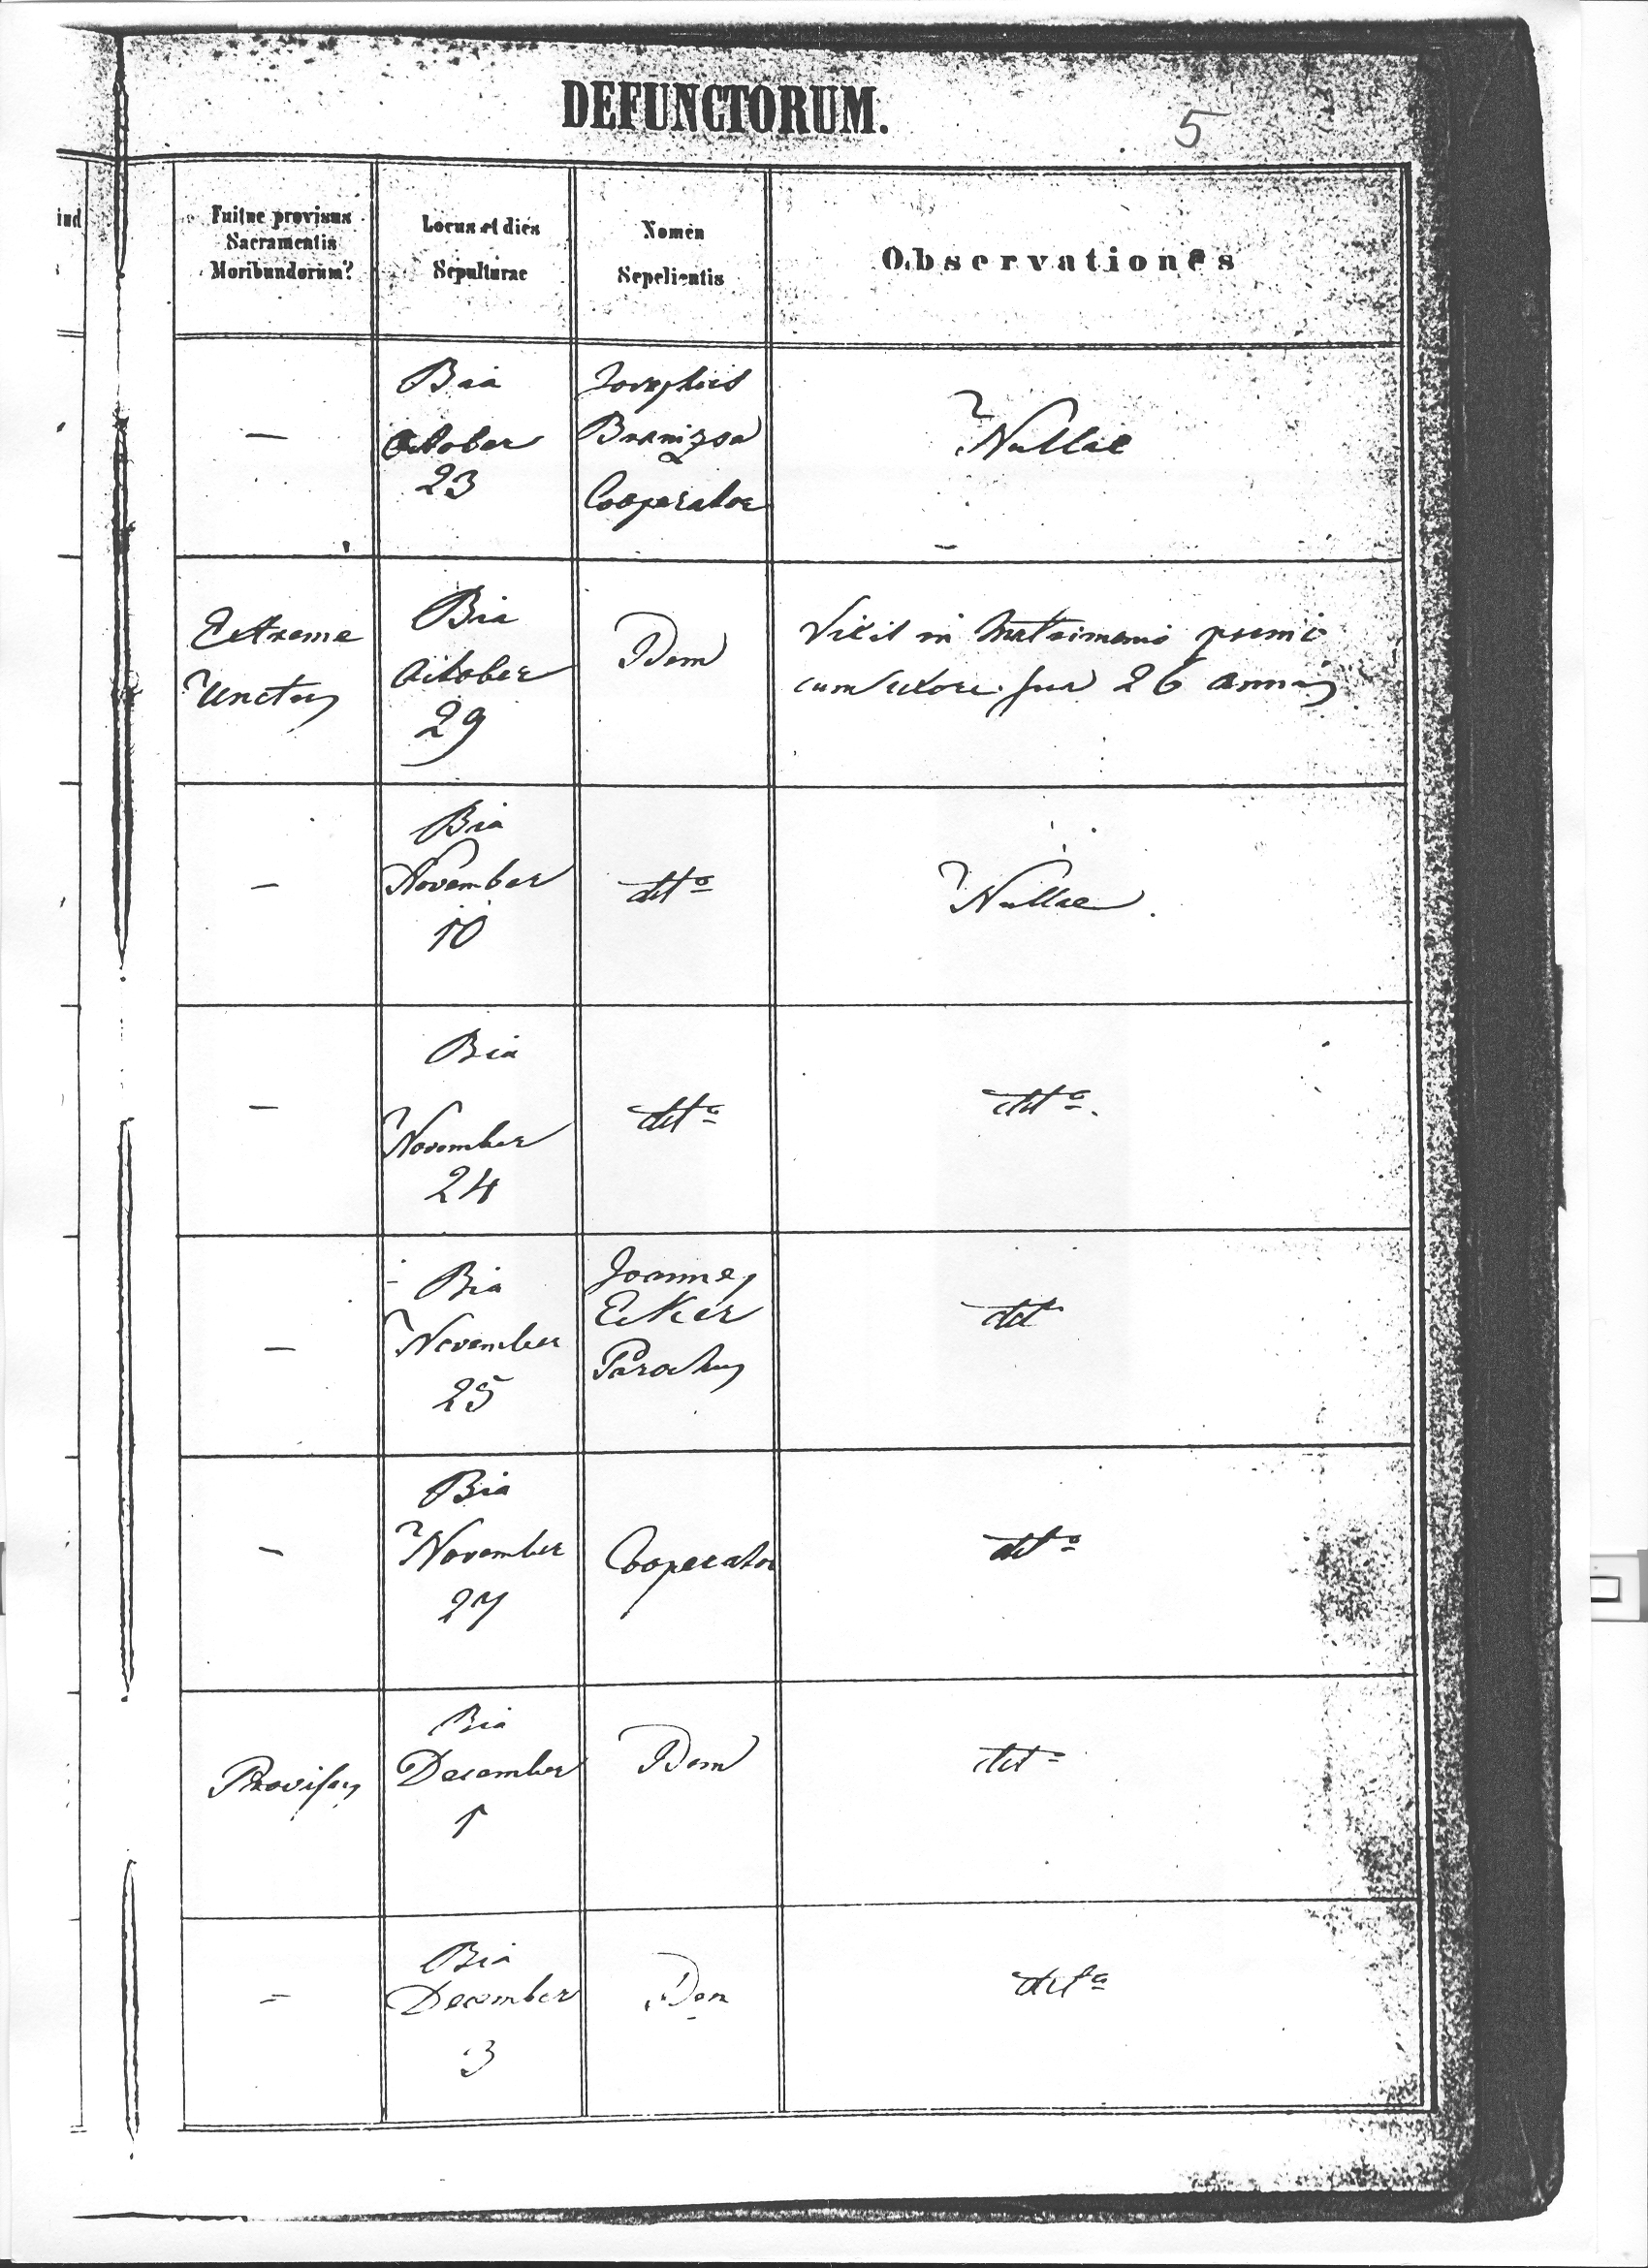 DEFUNCTORUM.
5
ind
Fuitne provisus
Sacramentis
Moribundorum?
Locus et dies
Sepulturae
Nomen
Sepelientis
Observationes
—
Bia
October
23
Josephus
Cooperator
Nullae
Extreme
Unctus
Bia
October
29
Idem
Vixit in Matrimonio primo
cum Uxore sua 26 annis
—
Bia
November
10
detto
Nullae.
—
Bia
November
24
detto
detto.
—
Bia
November
25
Joannes
Ecker
Parochus
dett
—
Bia
November
27
Cooperator
detto
Provisus
Bia
December
1
Idem
detto
=
Bia
December
3
Idem
detto